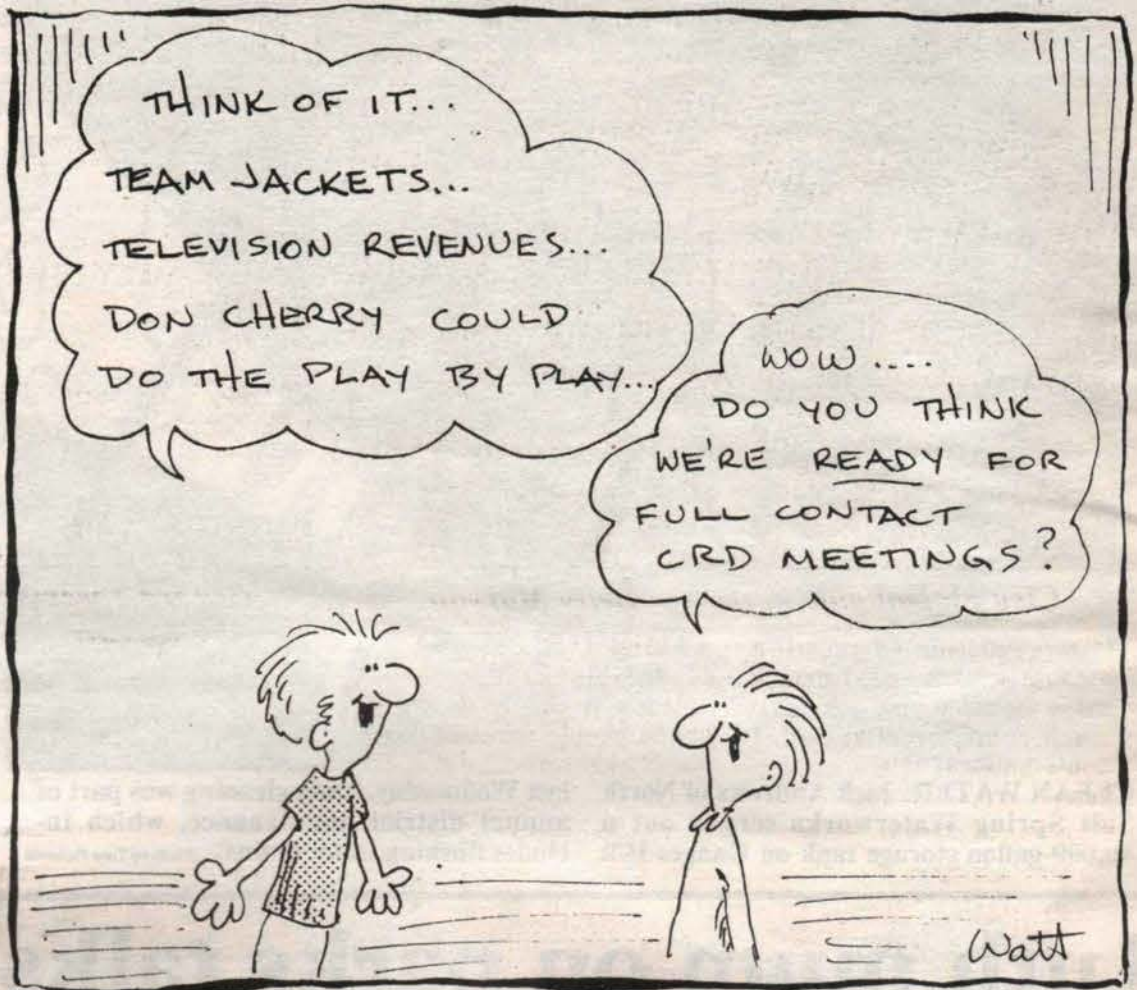 THINK OF IT...
TEAM JACKETS...
TELEVISION REVENUES...
DON CHERRY COULD
DO THE PLAY BY PLAY...
WOW....
DO YOU THINK
WE'RE READY FOR
FULL CONTACT
CRD MEETINGS?
Watt